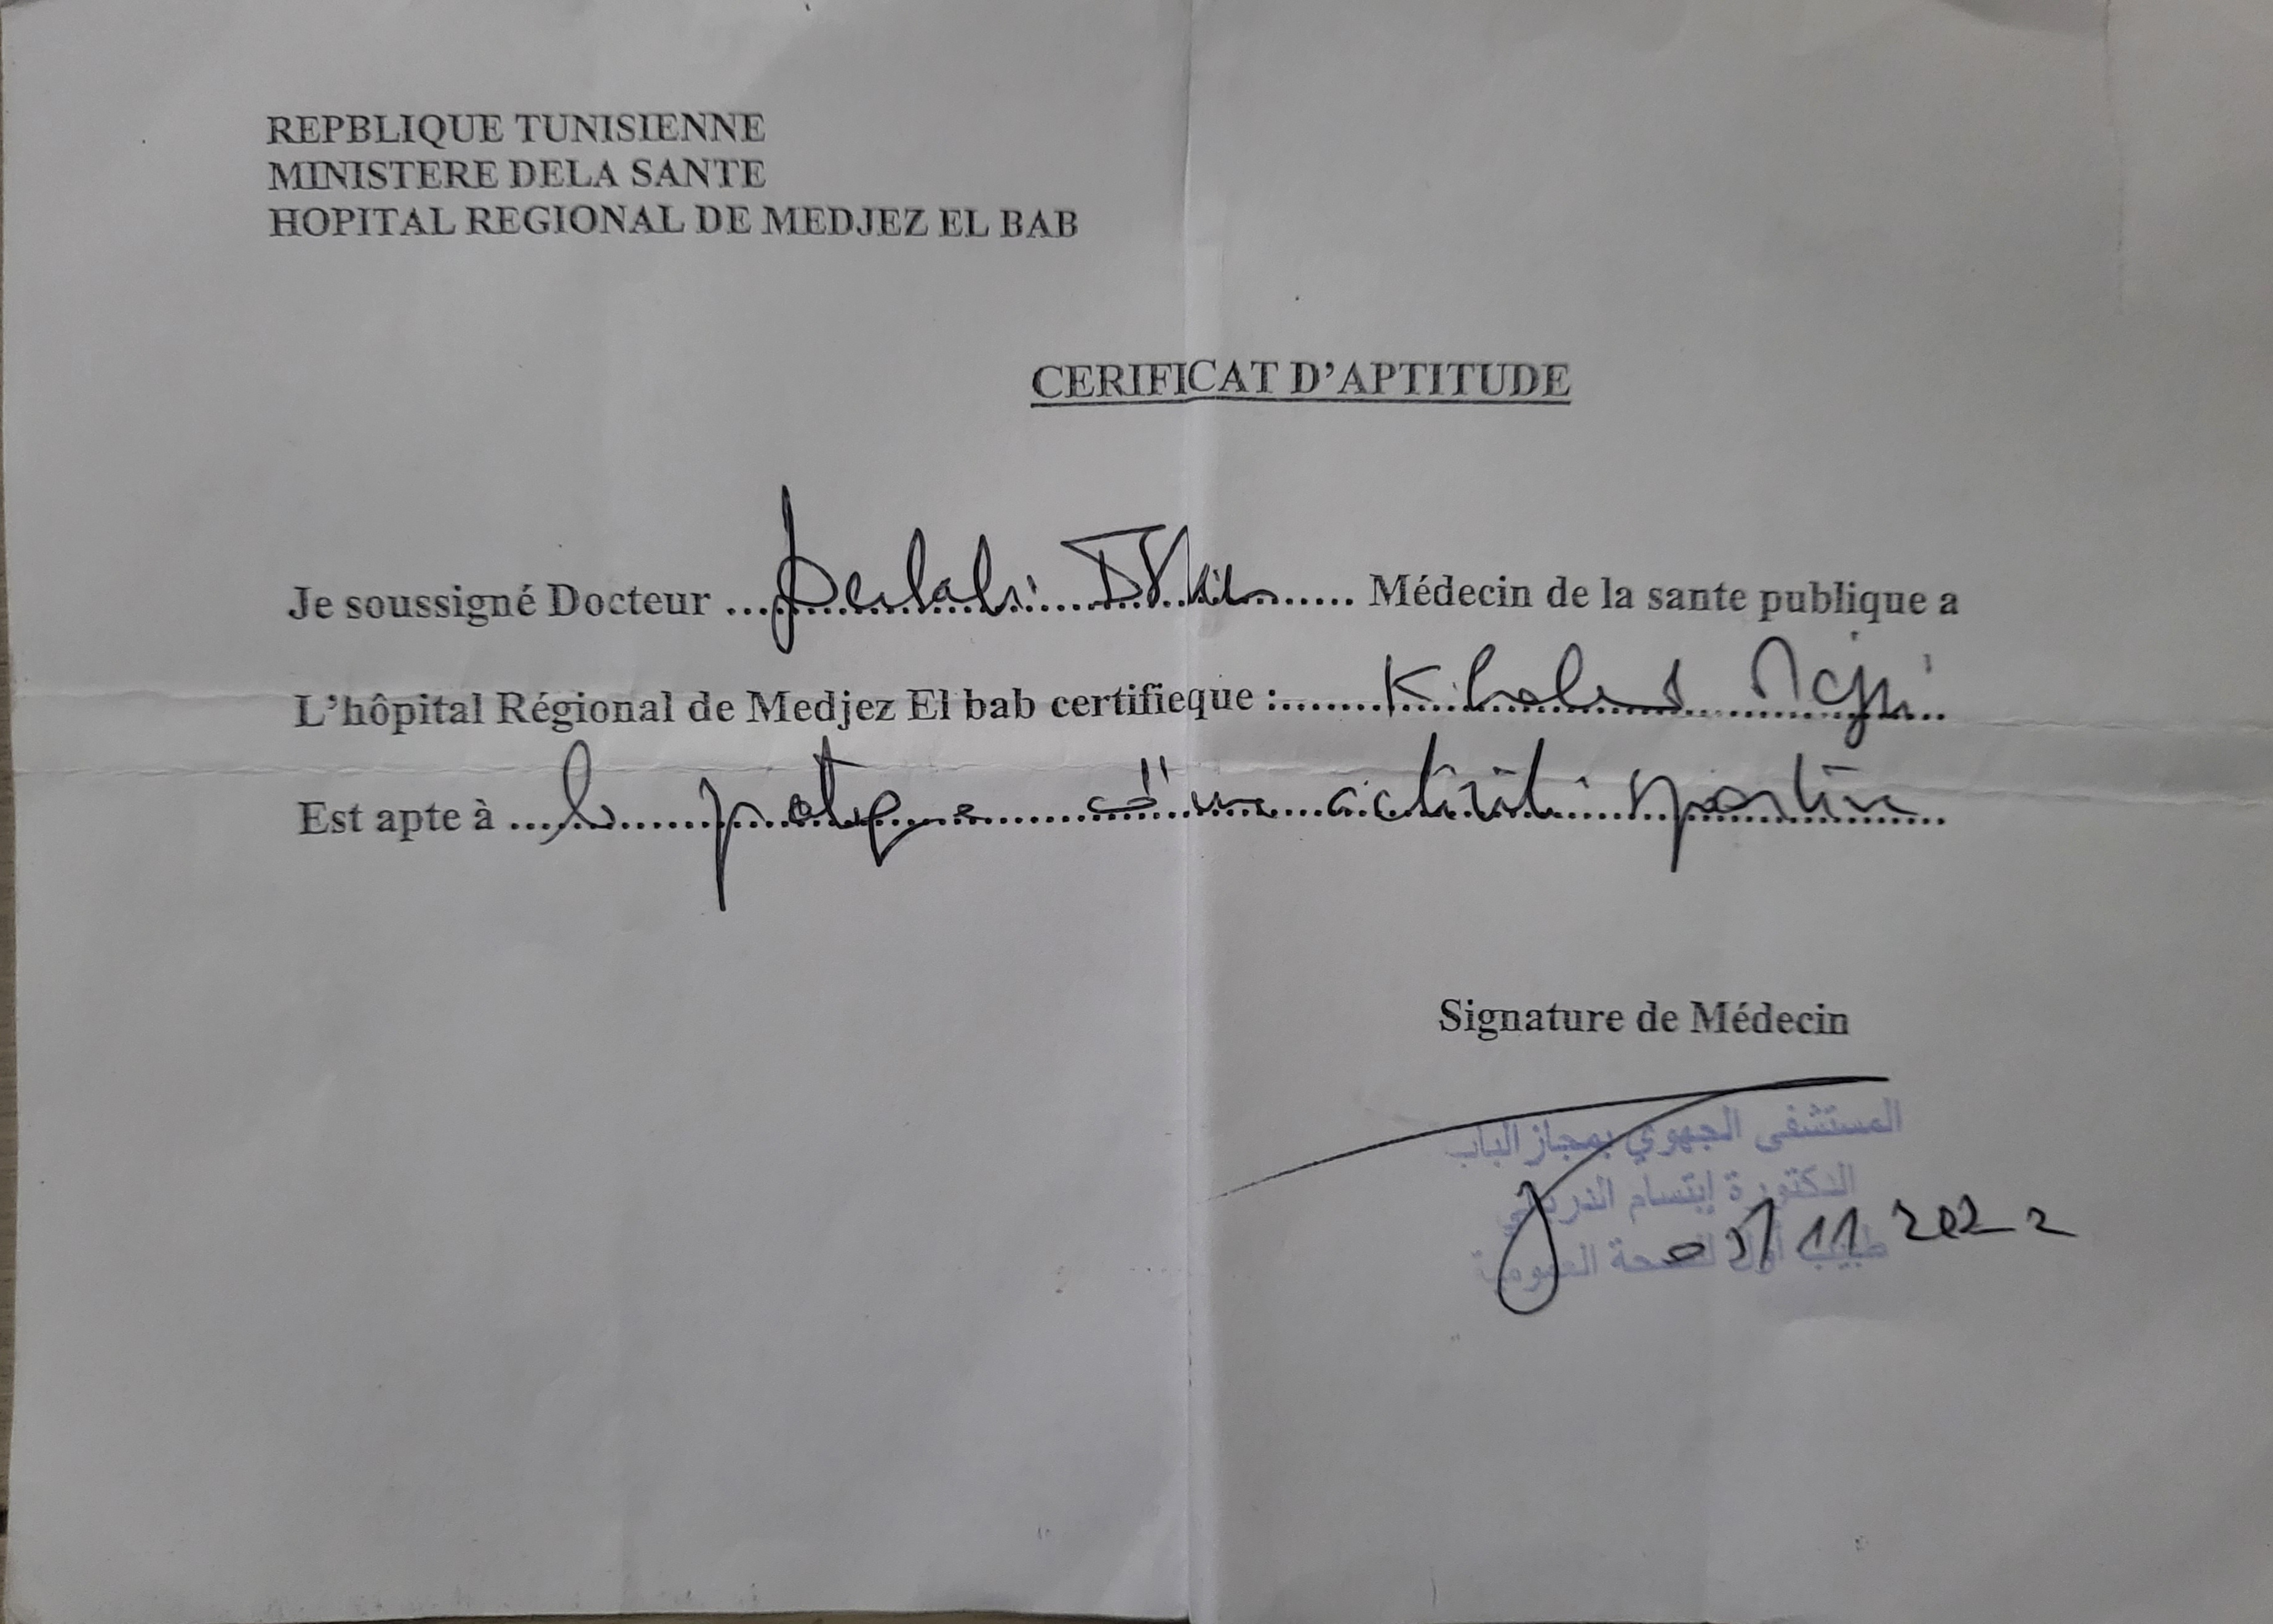 REPBLIQUE TUNISIENNE
MINISTERE DELA SANTE
HOPITAL REGIONAL DE MEDJEZ EL BAB
CERIFICAT D'APTITUDE
Je soussigné Docteur ... Médecin de la sante publique a
L'hôpital Régional de Medjez El bab certifieque :... Khaled
Est apte à ... la pratique d'une activité sportive
Signature de Médecin
المستشفى الجهوي بمجاز الباب
الدكتورة إبتسام الدريدي
طبيب أول للصحة العمومية
11 2022